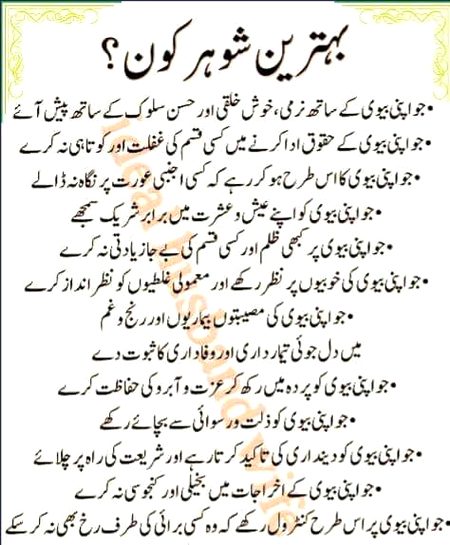 بہترین شوہر کون؟
• جو اپنی بیوی کے ساتھ نرمی، خوش خلقی اور حسن سلوک کے ساتھ پیش آئے
• جو اپنی بیوی کے حقوق ادا کرنے میں کسی قسم کی غفلت اور کوتاہی نہ کرے
• جو اپنی بیوی کا اس طرح ہو کر رہے کہ کسی اجنبی عورت پر نگاہ نہ ڈالے
• جو اپنی بیوی کو اپنے عیش و عشرت میں برابر شریک سمجھے
• جو اپنی بیوی پر کبھی ظلم اور کسی قسم کی بے جا زیادتی نہ کرے
• جو اپنی بیوی کی خوبیوں پر نظر رکھے اور معمولی غلطیوں کو نظر انداز کرے
• جو اپنی بیوی کی مصیبتوں بیماریوں اور رنج و غم
میں دل جوئی تیمارداری اور وفاداری کا ثبوت دے
• جو اپنی بیوی کو پردہ میں رکھ کر عزت و آبرو کی حفاظت کرے
• جو اپنی بیوی کو ذلت و رسوائی سے بچائے رکھے
• جو اپنی بیوی کو دینداری کی تاکید کرتا رہے اور شریعت کی راہ پر چلائے
• جو اپنی بیوی کے اخراجات میں بخیلی اور کنجوسی نہ کرے
• جو اپنی بیوی پر اس طرح کنٹرول رکھے کہ وہ کسی برائی کی طرف رخ بھی نہ کر سکے
Ideal husband wife